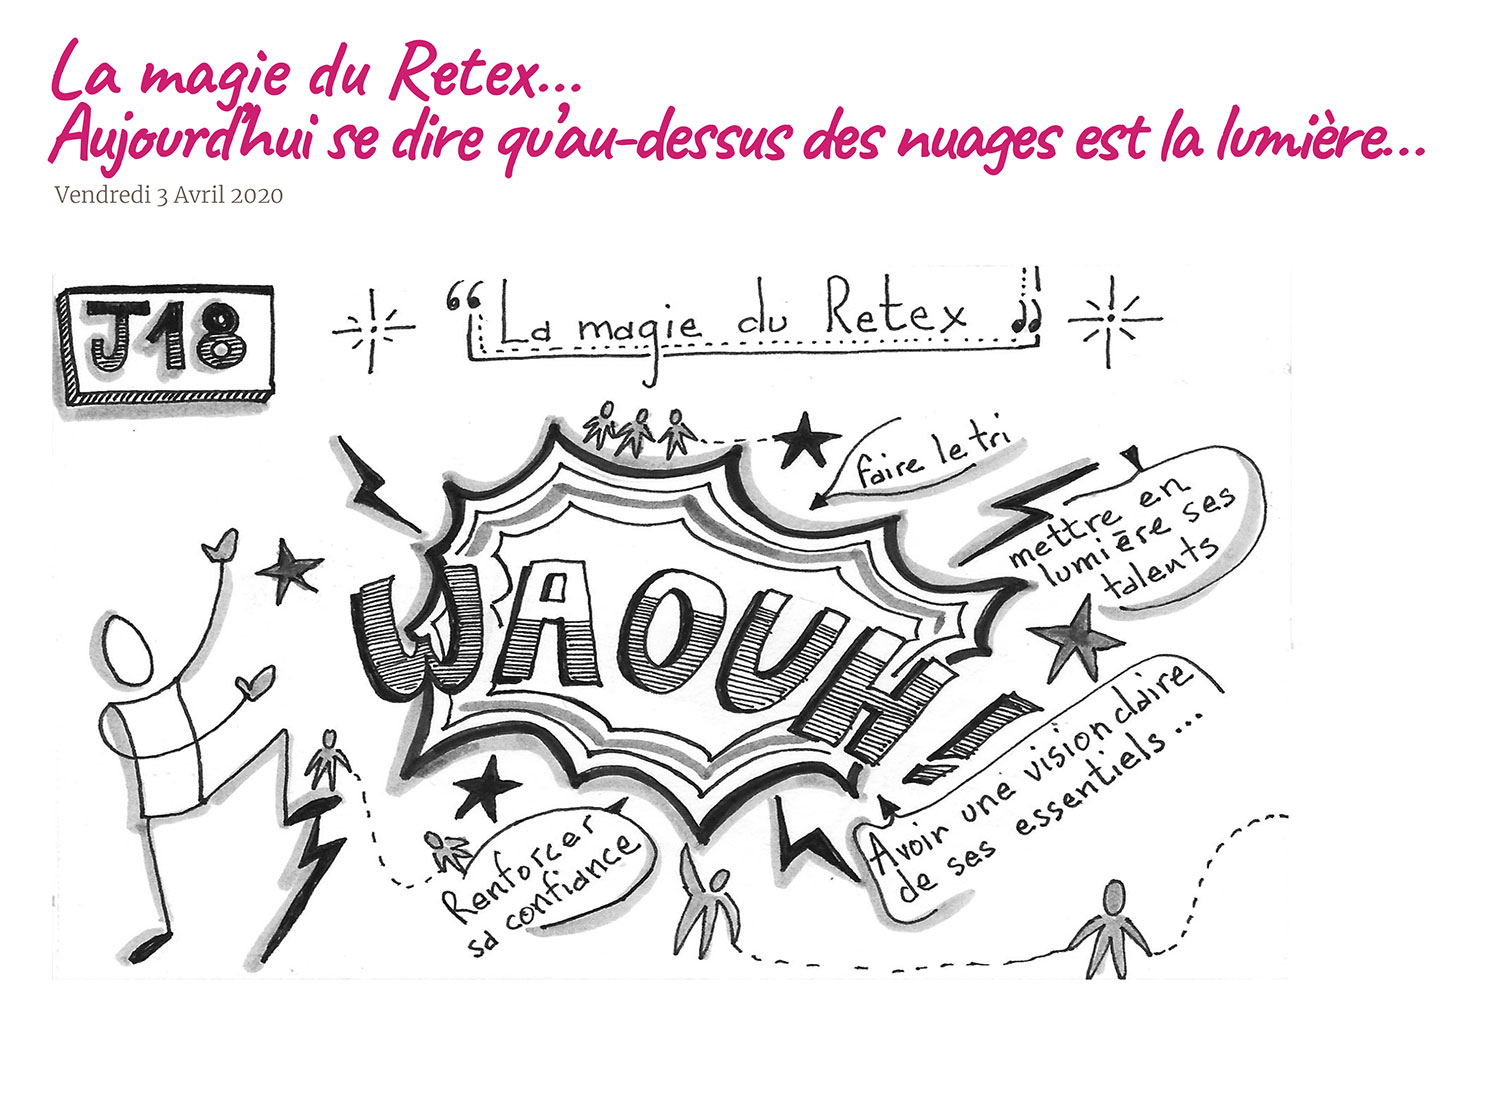 La magie du Retex...
Aujourd'hui se dire qu'au-dessus des nuages est la lumière...
Vendredi 3 Avril 2020
J18
“ La magie du Retex ”
faire le tri
mettre en
lumière ses
talents
WAOUH!
Avoir une vision claire
de ses essentiels...
Renforcer
sa confiance